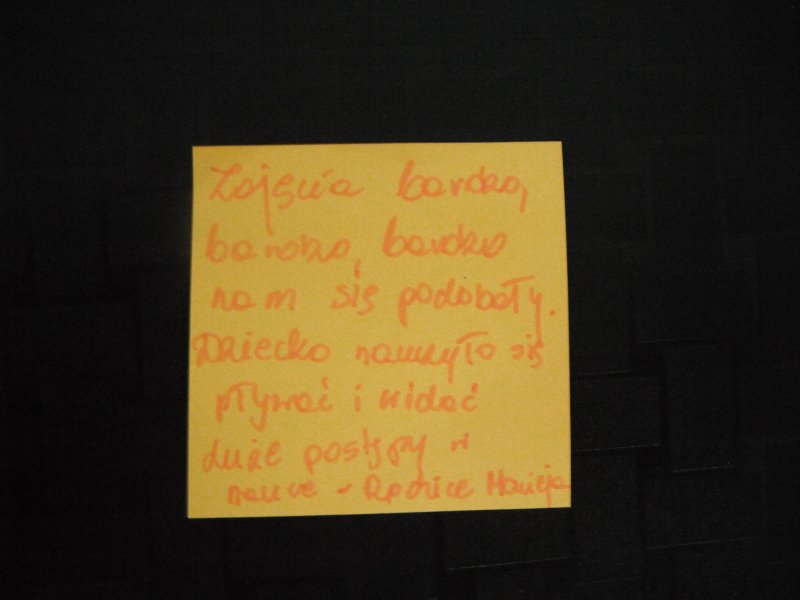 Zajęcia bardzo,
bardzo, bardzo
nam się podobały.
Dziecko nauczyło się
pływać i widać
duże postępy w
nauce - Rodzice Macieja